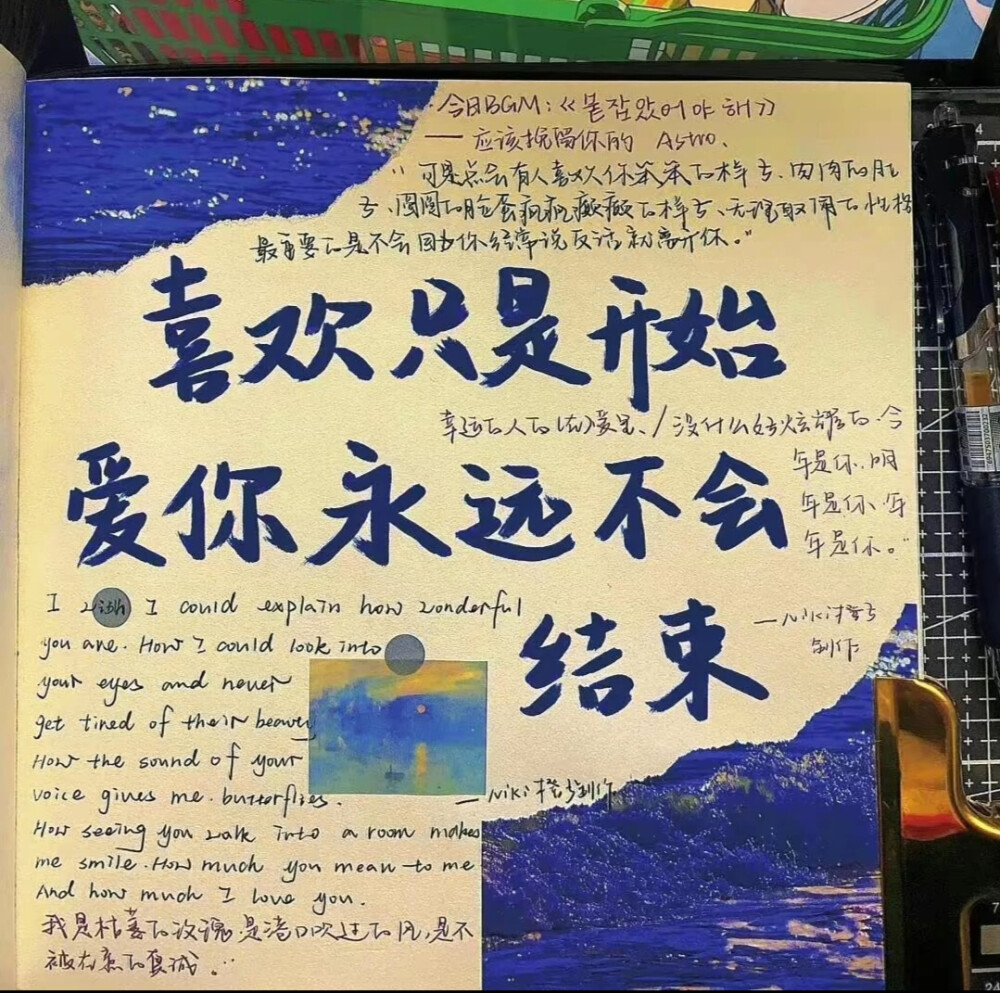 今日BGM:《붙잡았어야 해》
——应该挽留你的 Astro.
"可是总会有人喜欢你笨笨的样子、肉肉的肚
子、圆圆的脸蛋疯疯癫癫的样子、无理取闹的性格
最重要的是不会因为你经常说反话就离开你。"
喜欢只是开始
幸运的人的 爱是、/没什么好炫耀的.今
年是你.明
年是你.年
年是你。"
爱你永远不会
结束
—Niki橙子
制作
I wish I could explain how wonderful
you are. How I could look into
your eyes and never
get tired of their beauty
How the sound of your
voice gives me butterflies.
—Niki橙子制作
How seeing you walk into a room makes
me smile. How much you mean to me
And how much I love you.
我是枯萎的玫瑰.是港口吹过的风,是不
被在意的真诚。"